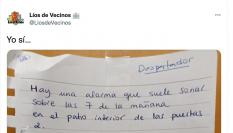 Líos de Vecinos
@LiosdeVecinos
Yo sí...
Despertador
Hay una alarma que suele sonar
sobre las 7 de la mañana
en el patio interior de las puertas
2.